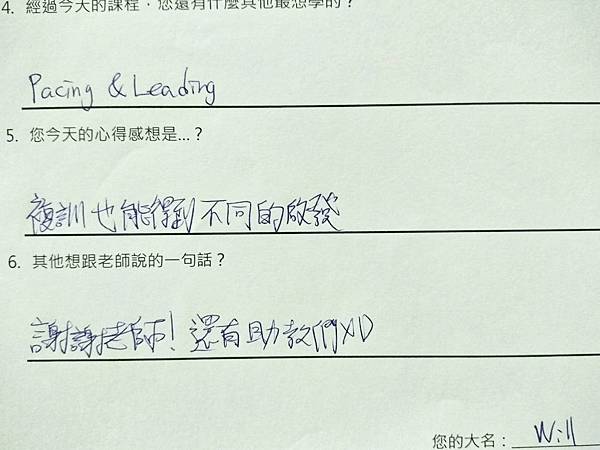 4. 經過今天的課程，您還有什麼其他最想學的？
Pacing & Leading
5. 您今天的心得感想是...？
複訓也能得到不同的啟發
6. 其他想跟老師說的一句話？
謝謝老師！還有助教們XD
您的大名：Will